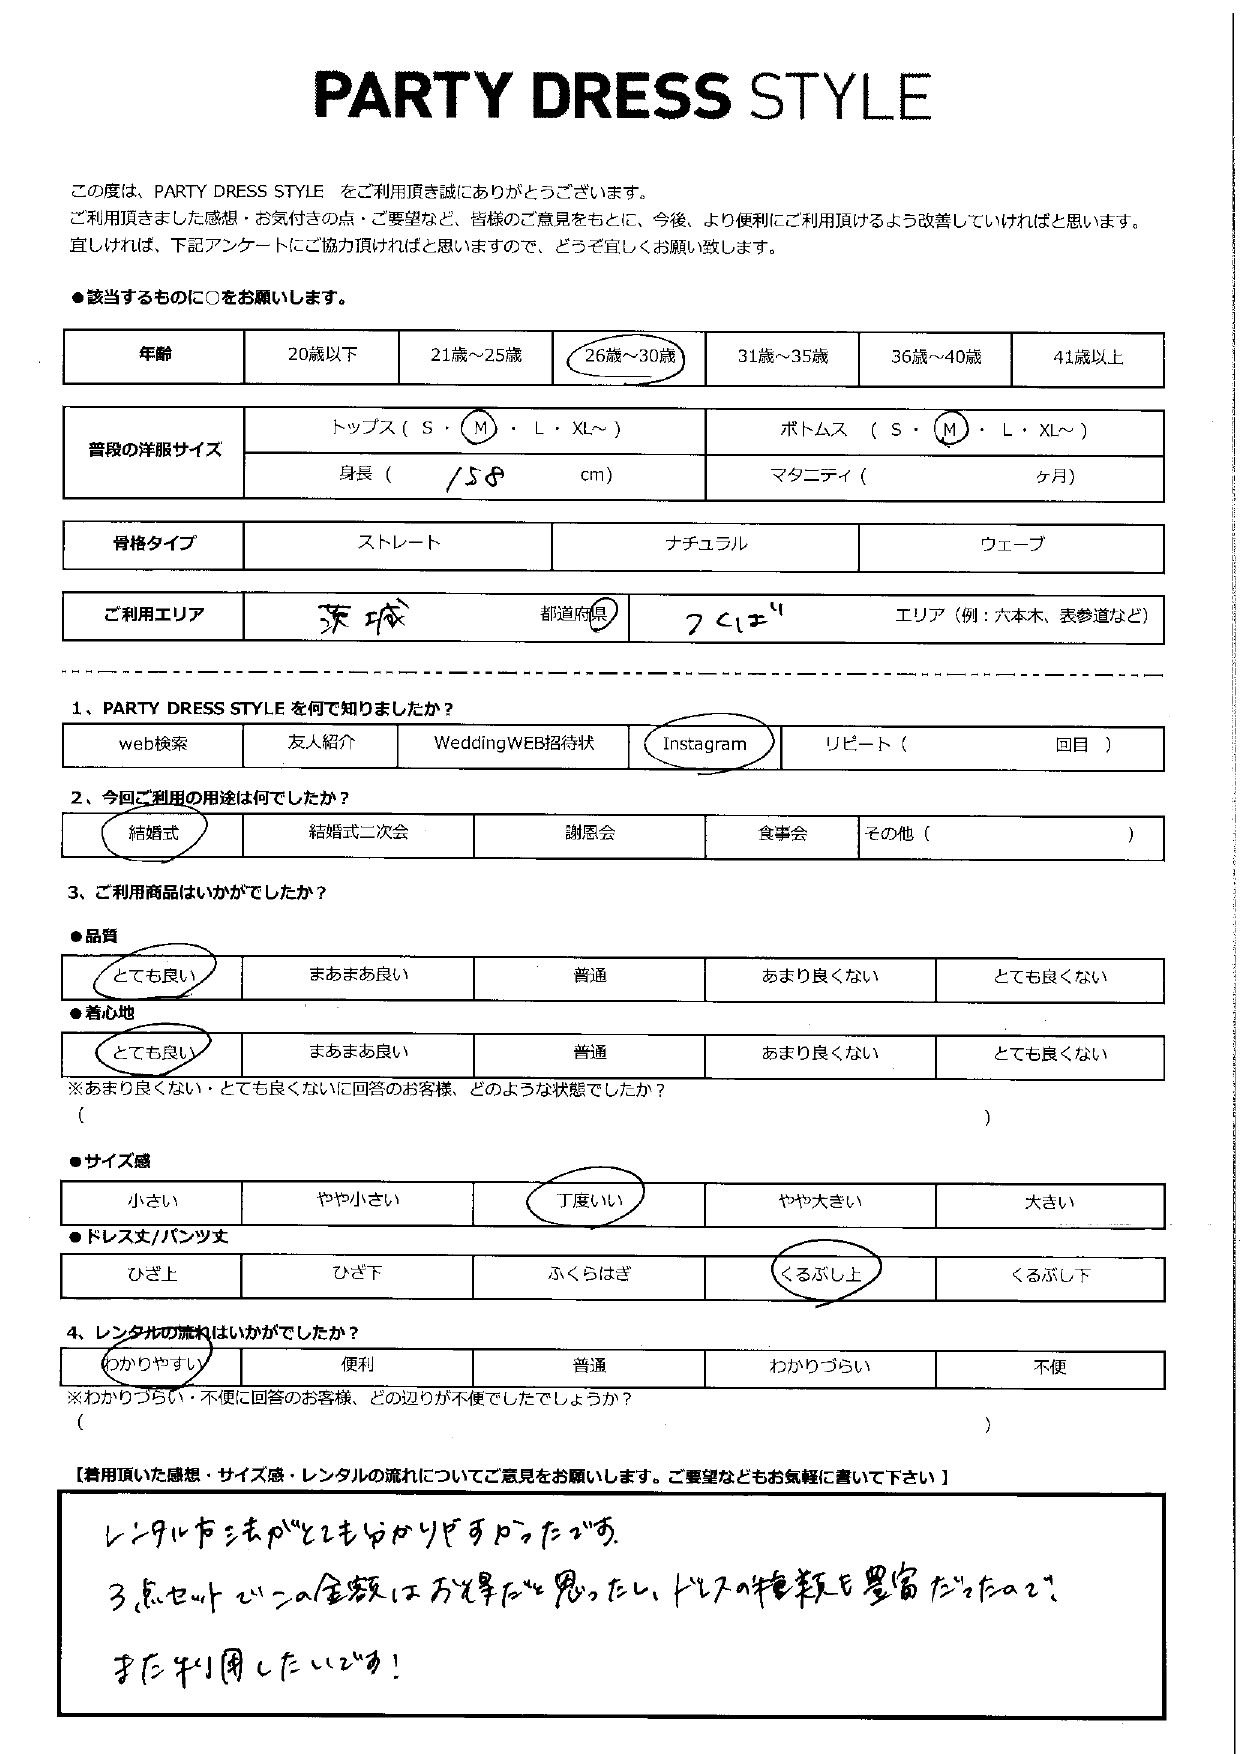 PARTY DRESS STYLE
この度は、PARTY DRESS STYLE をご利用頂き誠にありがとうございます。
ご利用頂きました感想・お気付きの点・ご要望など、皆様のご意見をもとに、今後、より便利にご利用頂けるよう改善していければと思います。
宜しければ、下記アンケートにご協力頂ければと思いますので、どうぞ宜しくお願い致します。
●該当するものに○をお願いします。
年齢 20歳以下 21歳～25歳 26歳～30歳 31歳～35歳 36歳～40歳 41歳以上
普段の洋服サイズ トップス ( S ・ M ・ L ・ XL～ ) ボトムス ( S ・ M ・ L ・ XL～ )
身長 ( 158 cm) マタニティ ( ヶ月)
骨格タイプ ストレート ナチュラル ウェーブ
ご利用エリア 茨城 都道府県 つくば エリア（例：六本木、表参道など）
1、PARTY DRESS STYLE を何で知りましたか？
web検索 友人紹介 WeddingWEB招待状 Instagram リピート ( 回目 )
2、今回ご利用の用途は何でしたか？
結婚式 結婚式二次会 謝恩会 食事会 その他 ( )
3、ご利用商品はいかがでしたか？
●品質
とても良い まあまあ良い 普通 あまり良くない とても良くない
●着心地
とても良い まあまあ良い 普通 あまり良くない とても良くない
※あまり良くない・とても良くないに回答のお客様、どのような状態でしたか？
( )
●サイズ感
小さい やや小さい 丁度いい やや大きい 大きい
●ドレス丈/パンツ丈
ひざ上 ひざ下 ふくらはぎ くるぶし上 くるぶし下
4、レンタルの流れはいかがでしたか？
わかりやすい 便利 普通 わかりづらい 不便
※わかりづらい・不便に回答のお客様、どの辺りが不便でしたでしょうか？
( )
【着用頂いた感想・サイズ感・レンタルの流れについてご意見をお願いします。ご要望などもお気軽に書いて下さい】
レンタル方法がとても分かりやすかったです。
3点セットでこの金額はお得だと思ったし、ドレスの種類も豊富だったので、
また利用したいです！